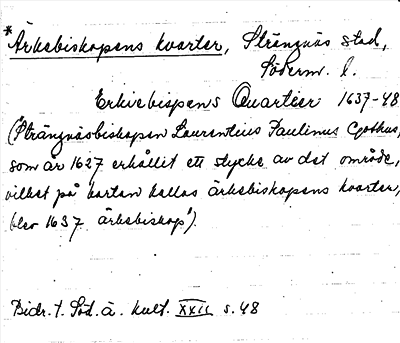 *Ärkebiskopens kvarter, Strängnäs stad,
Söderm. l.
Erkiebispens Quartier 1637-48
(Strängnäsbiskopen Laurentius Paulinus Gothus,
som år 1627 erhållit ett stycke av det område,
vilket på kartan kallas ärkebiskopens kvarter,
blev 1637 ärkebiskop').
Bidr. t. Söd. ä. kult. XXII s. 48